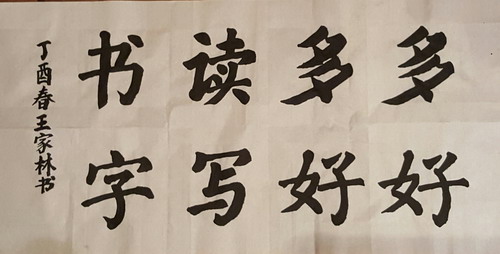 多多读书
好好写字
丁酉春王家林书